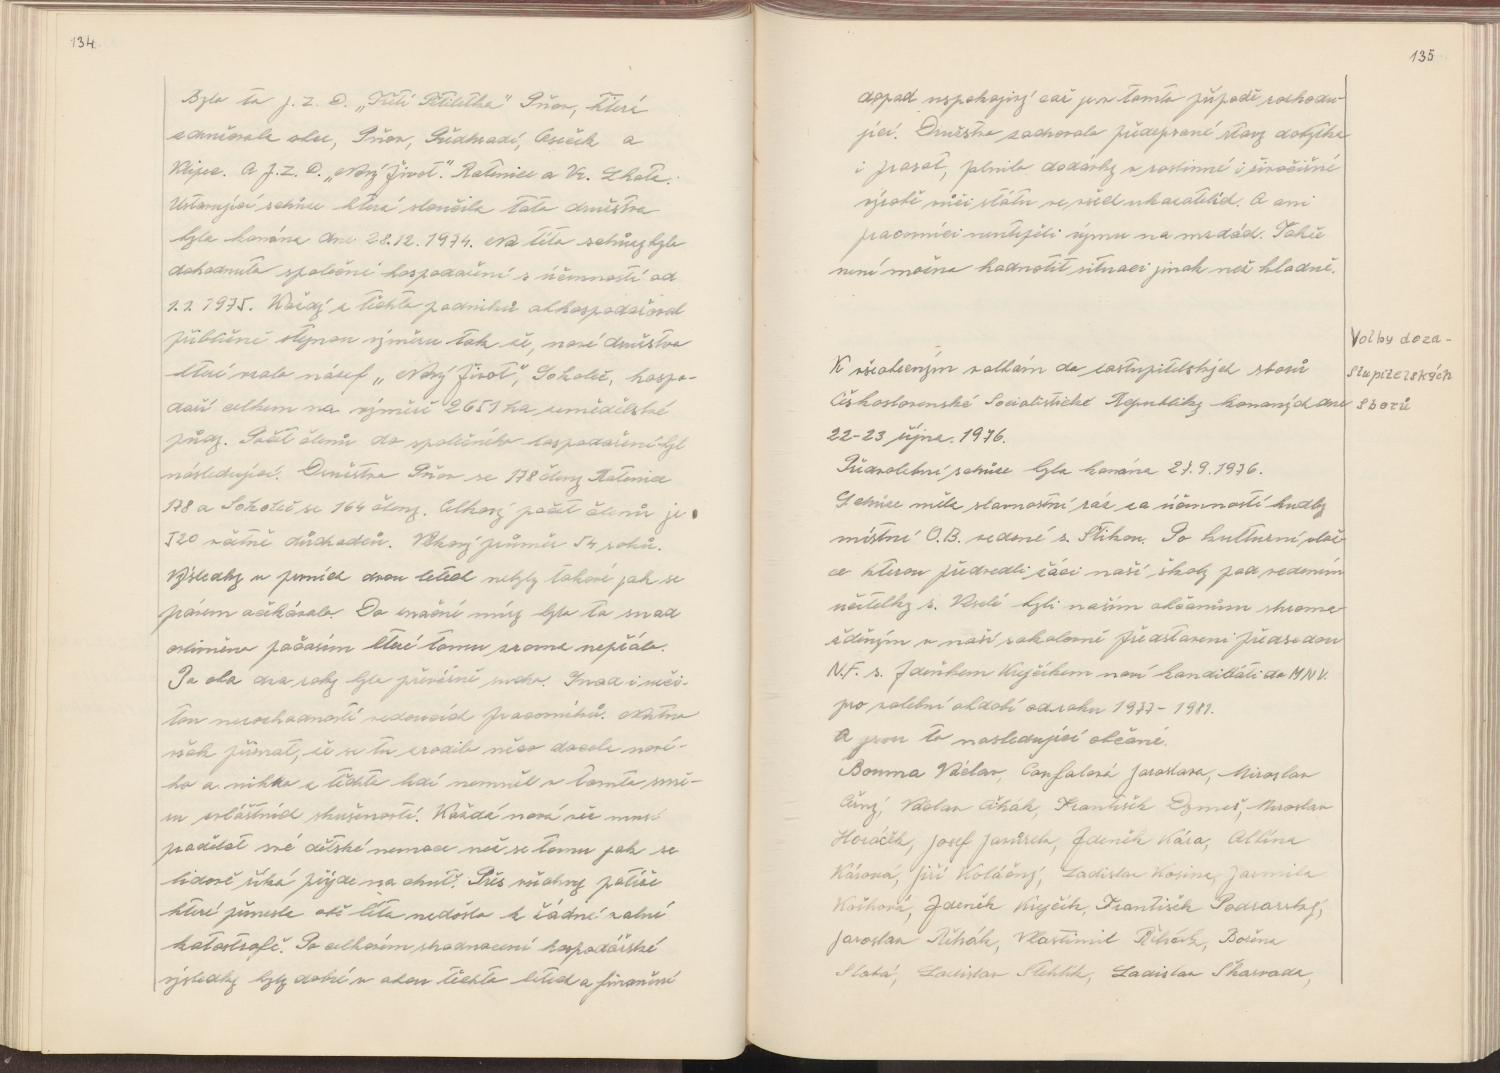 134
Bylo to J.Z.D. „Třetí Pětiletka" Pňov, které
sdružovalo obce, Pňov, Předhradí, Oseček a
Klipec. A J.Z.D. „Nový Život". Ratenice a Vr. Lhota.
Ustavující schůze která sloučila tato družstva
byla konána dne 28.12.1974. Na této schůzy bylo
dohodnuto společné hospodaření s účinností od
1.1.1975. Každý z těchto podniků obhospodařoval
přibližně stejnou výměru tak že, nové družstvo
které neslo název „Nový Život", Sokoleč, hospo-
daří celkem na výměře 2651 ha zemědělské
půdy. Počet členů do společného hospodaření byl
následující. Družstvo Pňov se 178 členy Ratenice
178 a Sokoleč se 164 členy. Celkový počet členů je
520 včetně důchodců. Věkový průměr 54 roků.
Výsledky v prvních dvou letech nebyly takové jak se
původně očekávalo. Do značné míry bylo to snad
ovlivněno počasím které tomu zrovna nepřálo.
Po oba dva roky bylo převážně sucho. Snad i urči-
tou nerozhodností vedoucích pracovníků. Nutno
však přiznat, že se tu zrodilo něco docela nové-
ho a nikdo z těchto lidí neměl v tomto smě-
ru zvláštních zkušeností. Každá nová věc musí
prodělat své dětské nemoce než se tomu jak se
lidově říká přijde na chuť. Přes všechny potíže
které přinesla obě léta nedošlo k žádné valné
katastrofě. Po celkovém zhodnocení hospodářské
výsledky byly dobré v obou těchto letech a finanční
135
dopad uspokojivý což je v tomto případě rozhodu-
jící. Družstvo zachovalo předepsané stavy dobytka
i prasat, plnilo dodávky v rostlinné i živočišné
výrobě vůči státu ve všech ukazatelích. A ani
pracovníci neutrpěli újmu na mzdách. Takže
není možno hodnotit situaci jinak než kladně.
Volby do za-
stupitelských
sborů
K všeobecným volbám do zastupitelských sborů
Československé Socialistické Republiky konaných dne
22-23 října. 1976.
Předvolební schůze byla konána 27.9.1976.
Schůze měla slavnostní ráz za účinnosti hudby
místní O.B. vedené s. Stihou. Po kulturní vlož-
ce kterou předvedli žáci naší školy pod vedením
učitelky s. Veselé byli našim občanům shromá-
žděným v naší sokolovně představeni předsedou
N.F. s. Zdeňkem Krejčíkem noví kandidáti do MNV.
pro volební období od roku 1977-1981.
A jsou to následující občané.
Bouma Václav, Confalová Jaroslava, Miroslav
Černý, Václav Čihák, František Dymeš, Miroslav
Horáček, Josef Janůrek, Zdeněk Kára, Albína
Kárová, Jiří Koláčný, Ladislav Kosina, Jarmila
Košková, Zdeněk Krejčík, František Podsarský,
Jaroslav Řehák, Vlastimil Řehák, Božena
Slabá, Ladislav Stehlík, Ladislav Škarvada,